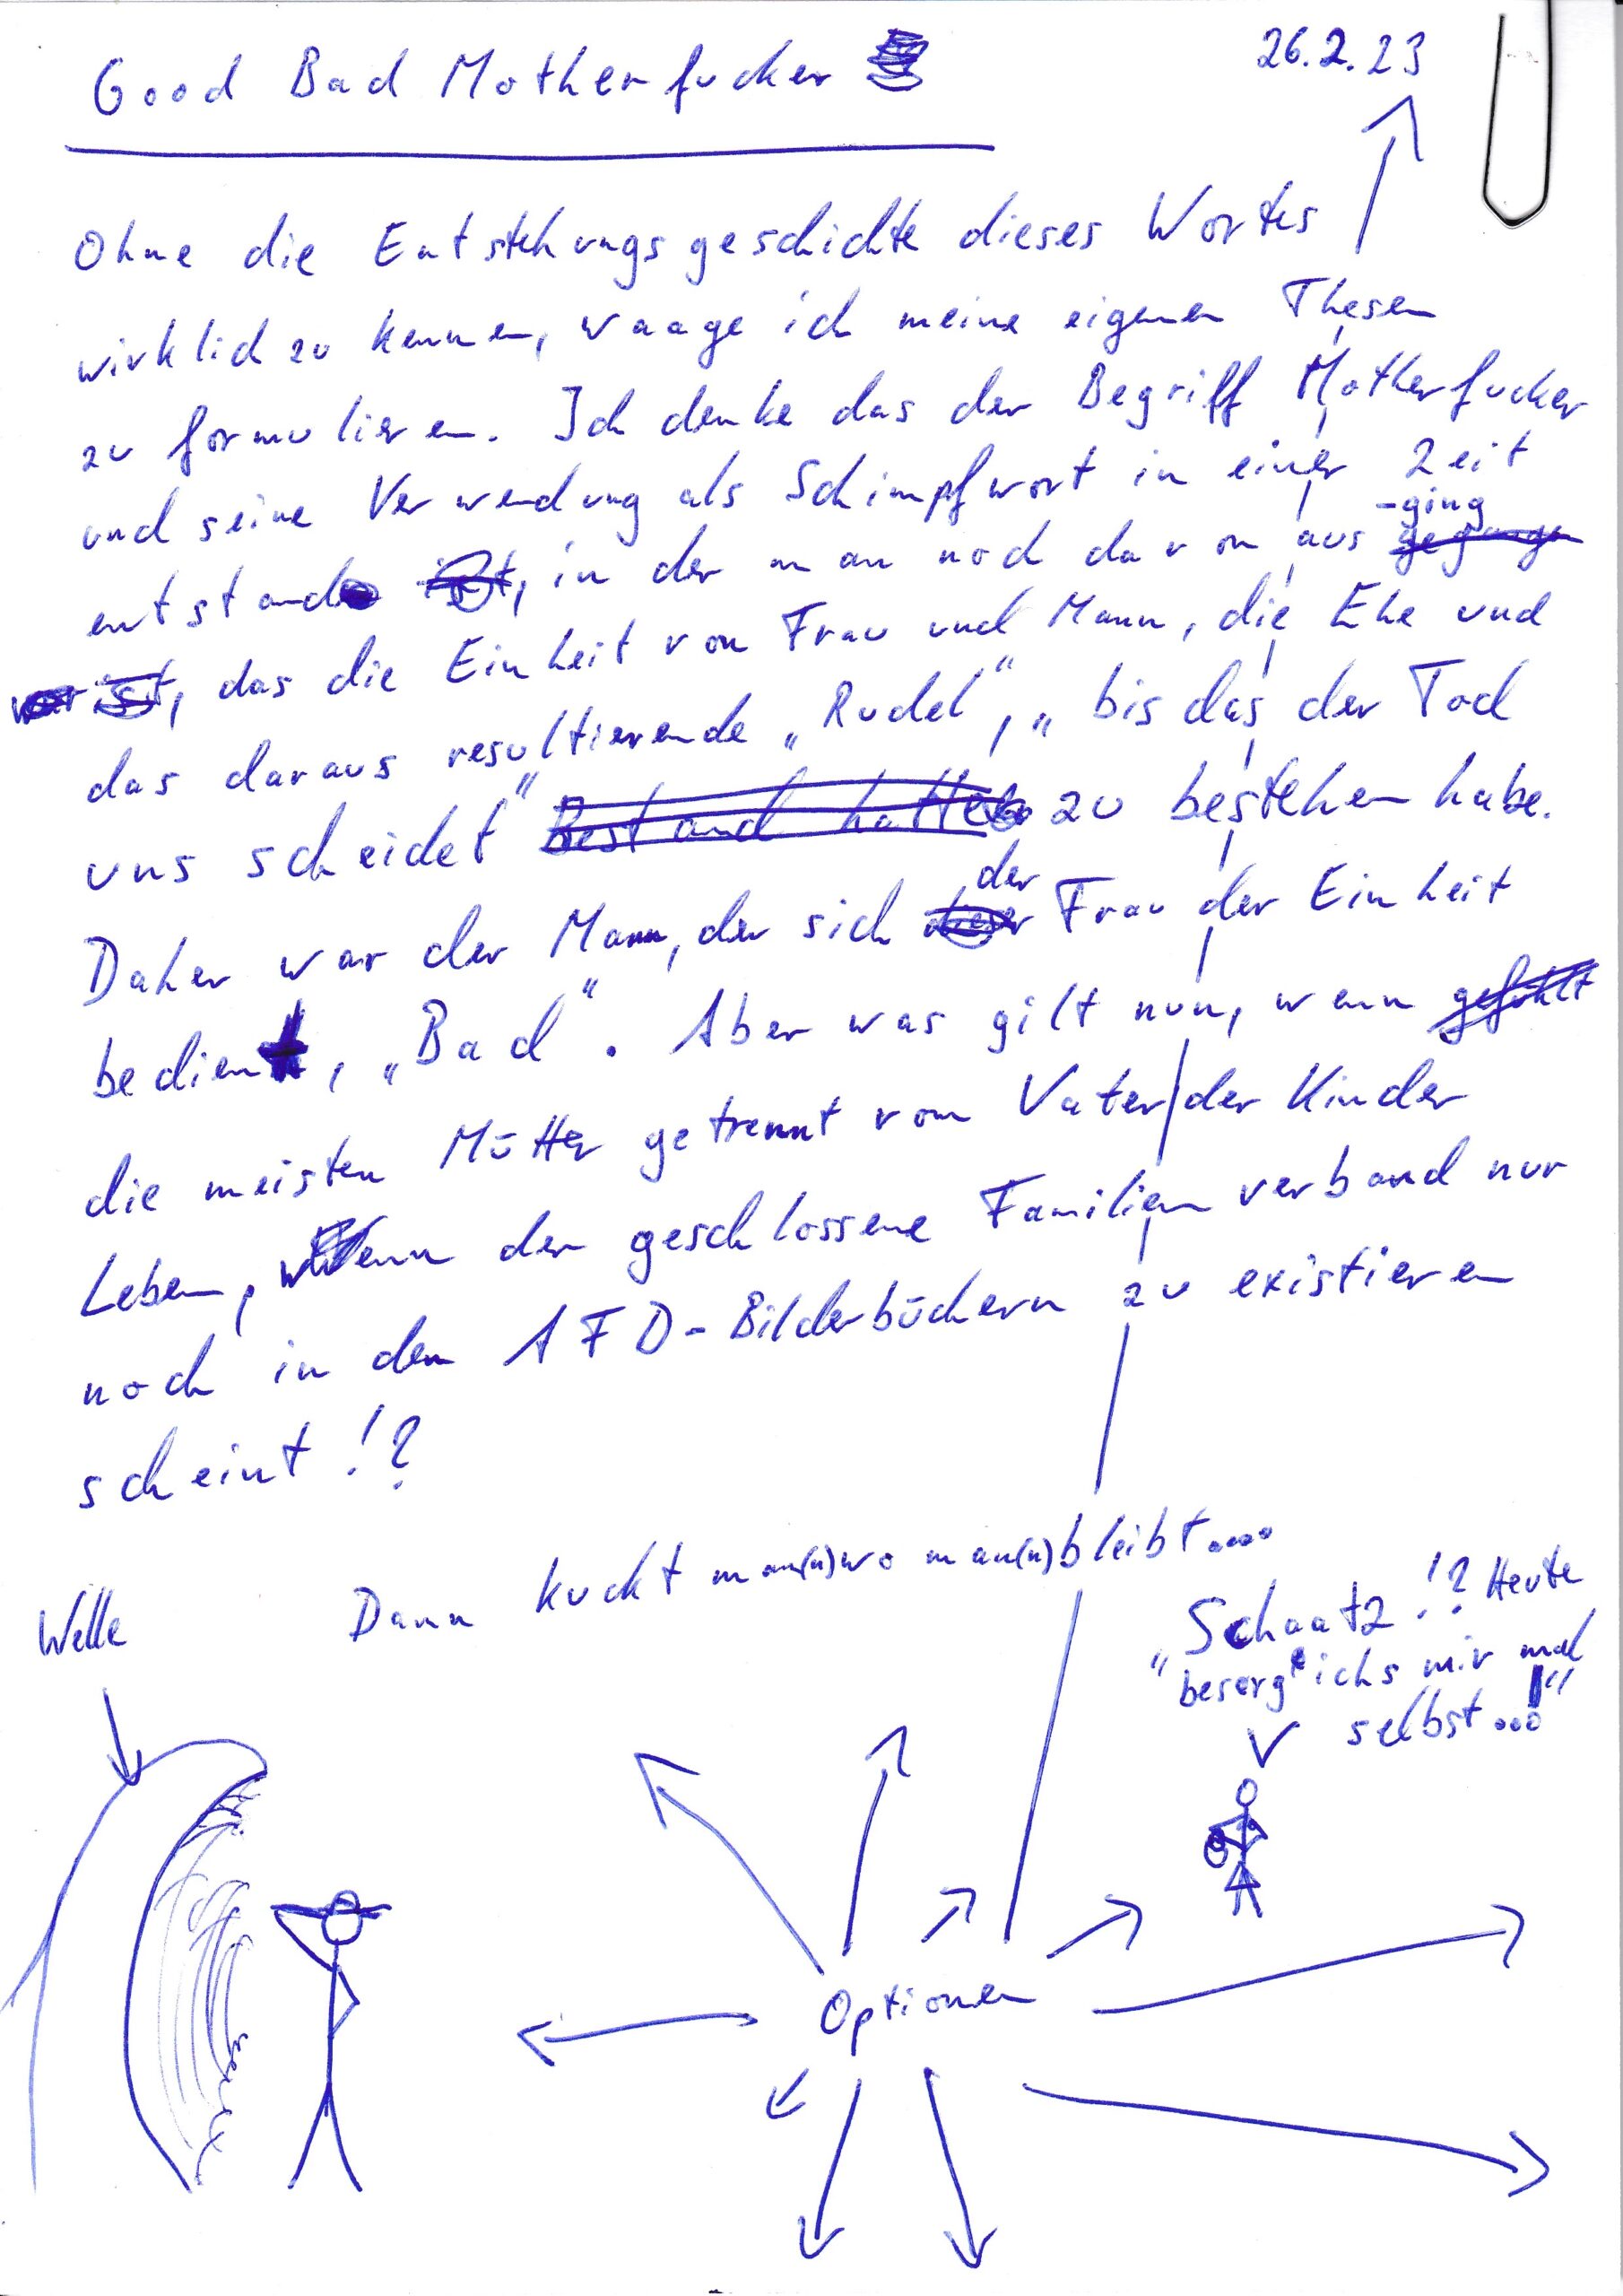 Good Bad Motherfucker
26.2.23
Ohne die Entstehungsgeschichte dieses Wortes
wirklich zu kennen, waage ich meine eigenen Thesen
zu formulieren. Ich denke das der Begriff Motherfucker
und seine Verwendung als Schimpfwort in einer Zeit
entstand ist, in der man noch davon aus -ging gegangen
war ist, das die Einheit von Frau und Mann, die Ehe und
das daraus resultierende „Rudel“, „bis das der Tod
uns scheidet“ Bestand hatte zu bestehen habe.
Daher war der Mann, der sich der dieser Frau der Einheit
bedient, „Bad“. Aber was gilt nun, wenn gefühlt
die meisten Mütter getrennt vom Vater der Kinder
Leben, wenn der geschlossene Familienverband nur
noch in den AFD-Bilderbüchern zu existieren
scheint!?
Dann kuckt man(n) wo man(n) bleibt....
Welle
„Schaatz!? Heute
besorg ichs mir mal
selbst...!“
Optionen